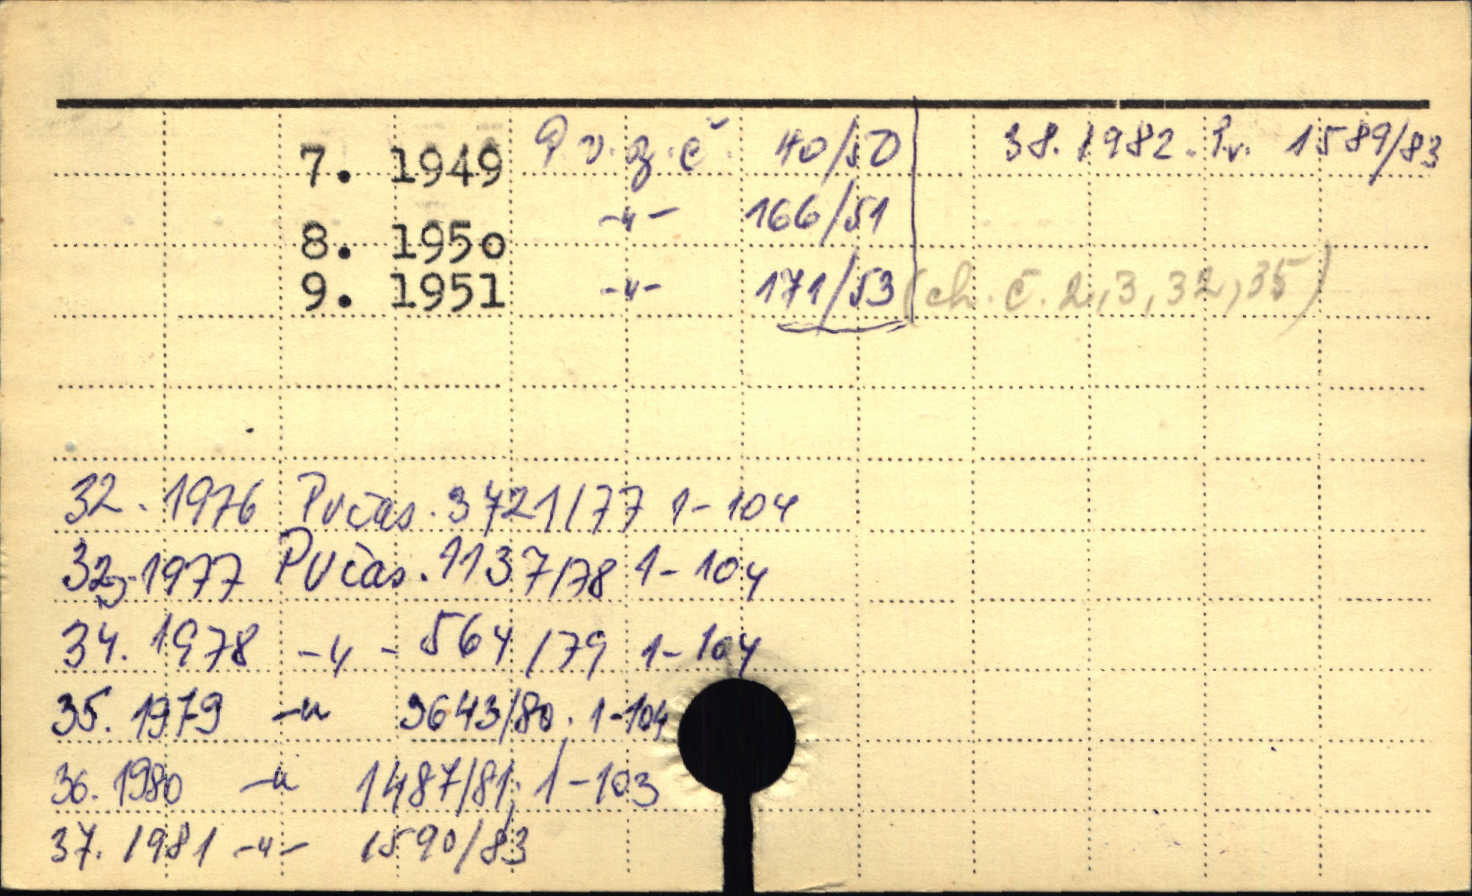 7. 1949 P.v.z.č. 40/50
8. 1950 -"- 166/51
9. 1951 -"- 171/53 (ch. č. 2,3,32,35)
38. 1982. Pv. 1589/83
32. 1976 PVčas. 3721/77 1-104
33. 1977 PVčas. 1137/78 1-104
34. 1978 -"- 564/79 1-104
35. 1979 -"- 3643/80. 1-104
36. 1980 -"- 1487/81; 1-103
37. 1981 -"- 1590/83